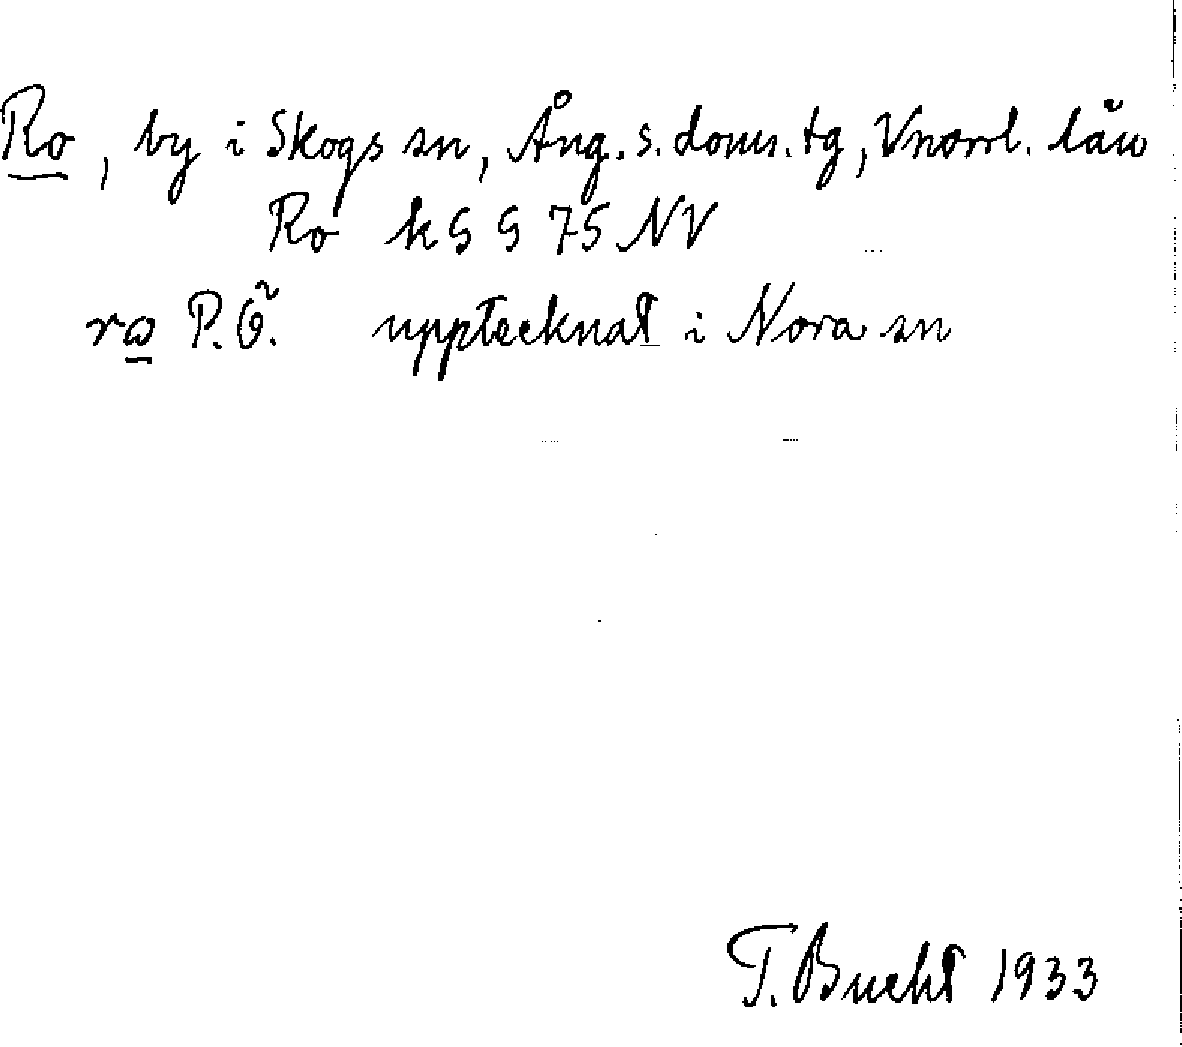 Ro, by i Skogs sn, Ång. s. doms. tg, Vnorrl. län
Ro k G G 75 NV
rω P.Ö. upptecknat i Nora sn
T. Bucht 1933